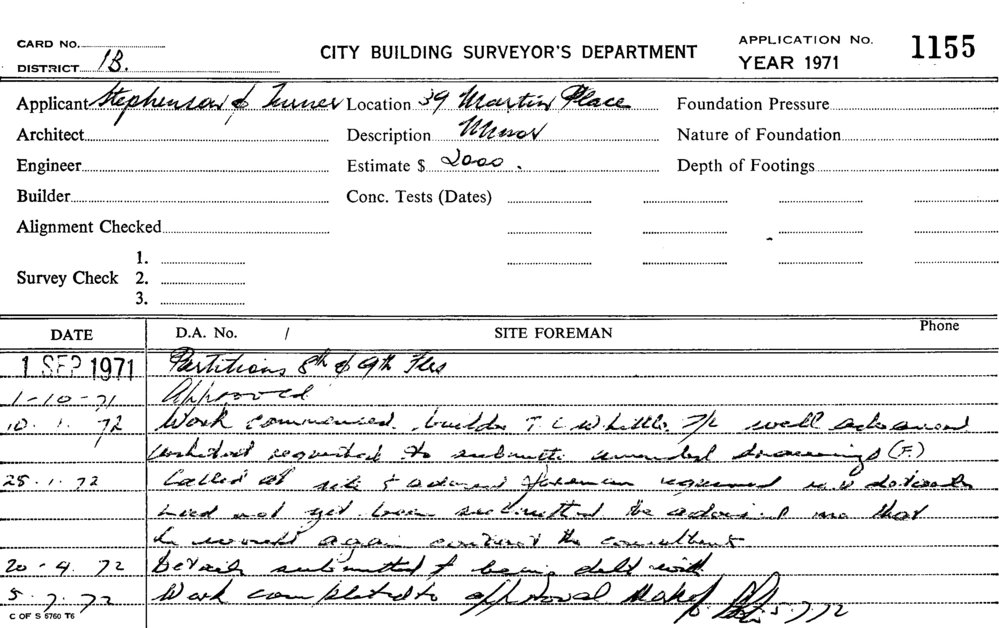 CARD No.
DISTRICT 1B.
CITY BUILDING SURVEYOR'S DEPARTMENT
APPLICATION No. 1155
YEAR 1971
Applicant Stephenson & Turner Location 39 Martin Place Foundation Pressure
Architect Description Minor Nature of Foundation
Engineer Estimate $ 2000. Depth of Footings
Builder Conc. Tests (Dates)
Alignment Checked
1.
Survey Check 2.
3.
DATE D.A. No. / SITE FOREMAN Phone
1 SEP 1971 Partitions 8th & 9th Flrs
1-10-71 Approved
10.1.72 Work commenced. builder T C Whittle P/L well advanced
requested to submit amended drawings (F.)
25.1.72 Called at site & advised foreman required
had not yet been submitted he advised me that
he would again contact the consultant
20-4.72 Details submitted & being dealt with
5.7.72 Work completed to approval 5.7.72
C OF S 6760 T6